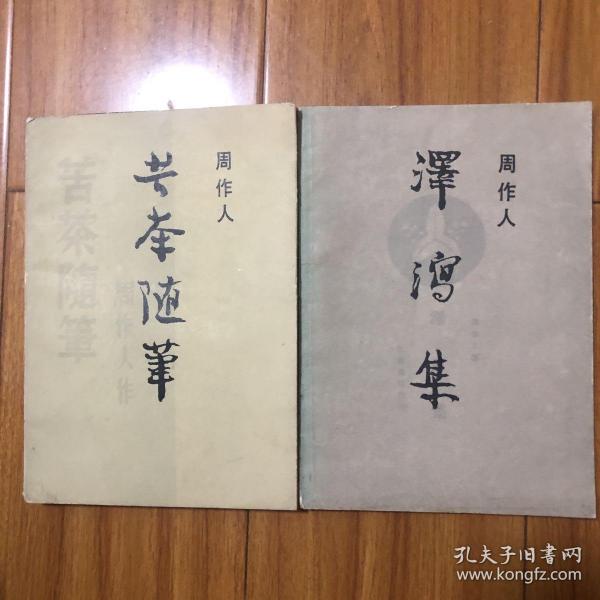 周作人
苦茶随筆
苦茶隨筆
周作人作
周作人
澤瀉集
孔夫子旧书网
www.kongfz.com